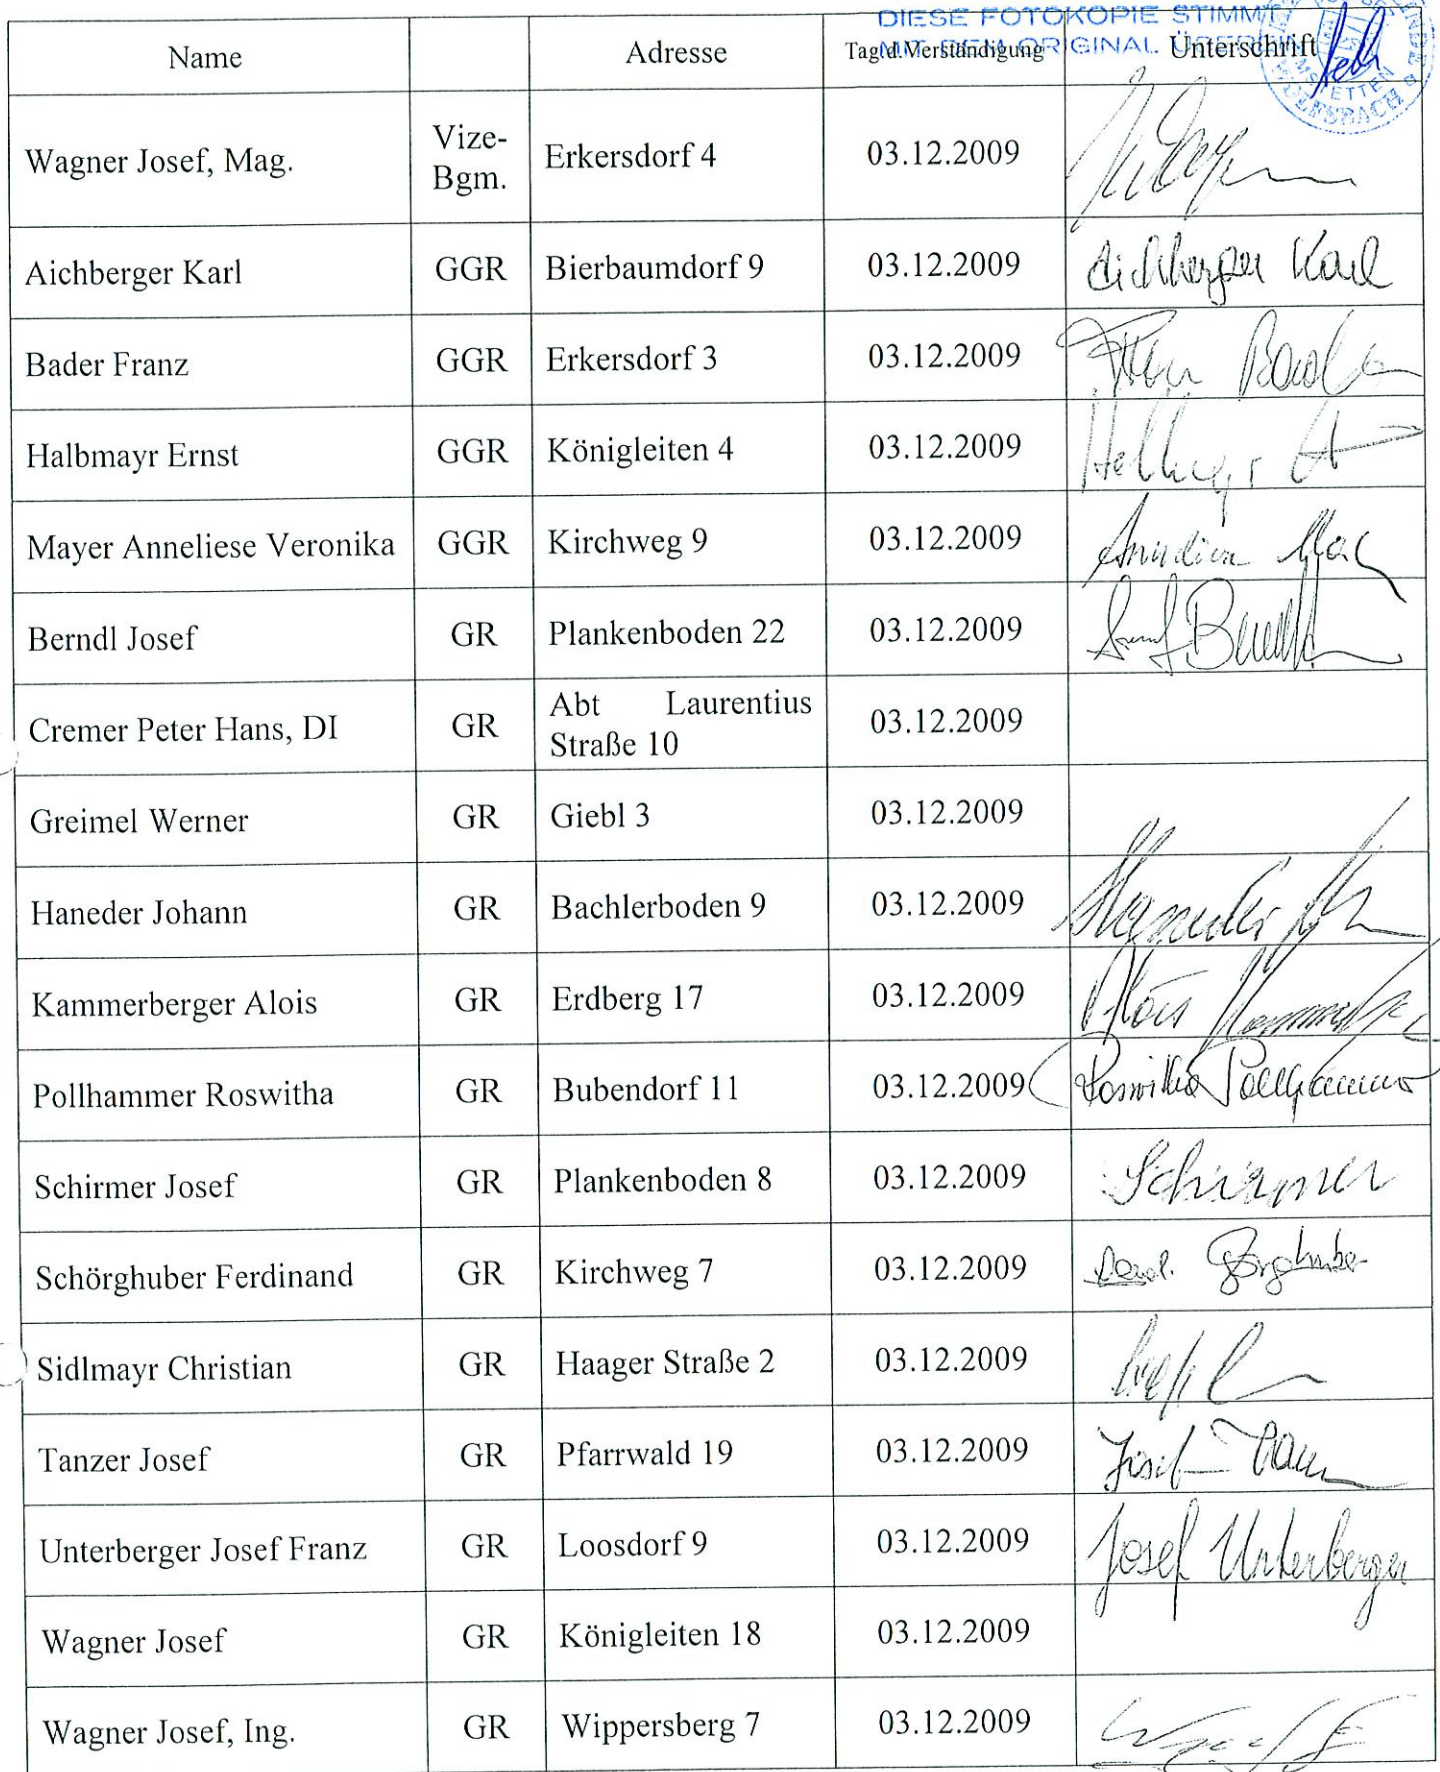 DIESE FOTOKOPIE STIMMT
MIT DEM ORIGINAL ÜBEREIN
Name Adresse Tag d. Verständigung Unterschrift
AMSTETTEN
WOLFSBACH
Wagner Josef, Mag. Vize-
Bgm. Erkersdorf 4 03.12.2009
Aichberger Karl GGR Bierbaumdorf 9 03.12.2009 Aichberger Karl
Bader Franz GGR Erkersdorf 3 03.12.2009 Franz Bader
Halbmayr Ernst GGR Königleiten 4 03.12.2009
Mayer Anneliese Veronika GGR Kirchweg 9 03.12.2009
Berndl Josef GR Plankenboden 22 03.12.2009 Josef Berndl
Cremer Peter Hans, DI GR Abt Laurentius
Straße 10 03.12.2009
Greimel Werner GR Giebl 3 03.12.2009
Haneder Johann GR Bachlerboden 9 03.12.2009 Haneder
Kammerberger Alois GR Erdberg 17 03.12.2009 Alois Kammerberger
Pollhammer Roswitha GR Bubendorf 11 03.12.2009 Roswitha Pollhammer
Schirmer Josef GR Plankenboden 8 03.12.2009 Schirmer
Schörghuber Ferdinand GR Kirchweg 7 03.12.2009
Sidlmayr Christian GR Haager Straße 2 03.12.2009
Tanzer Josef GR Pfarrwald 19 03.12.2009 Josef
Unterberger Josef Franz GR Loosdorf 9 03.12.2009 Josef Unterberger
Wagner Josef GR Königleiten 18 03.12.2009
Wagner Josef, Ing. GR Wippersberg 7 03.12.2009